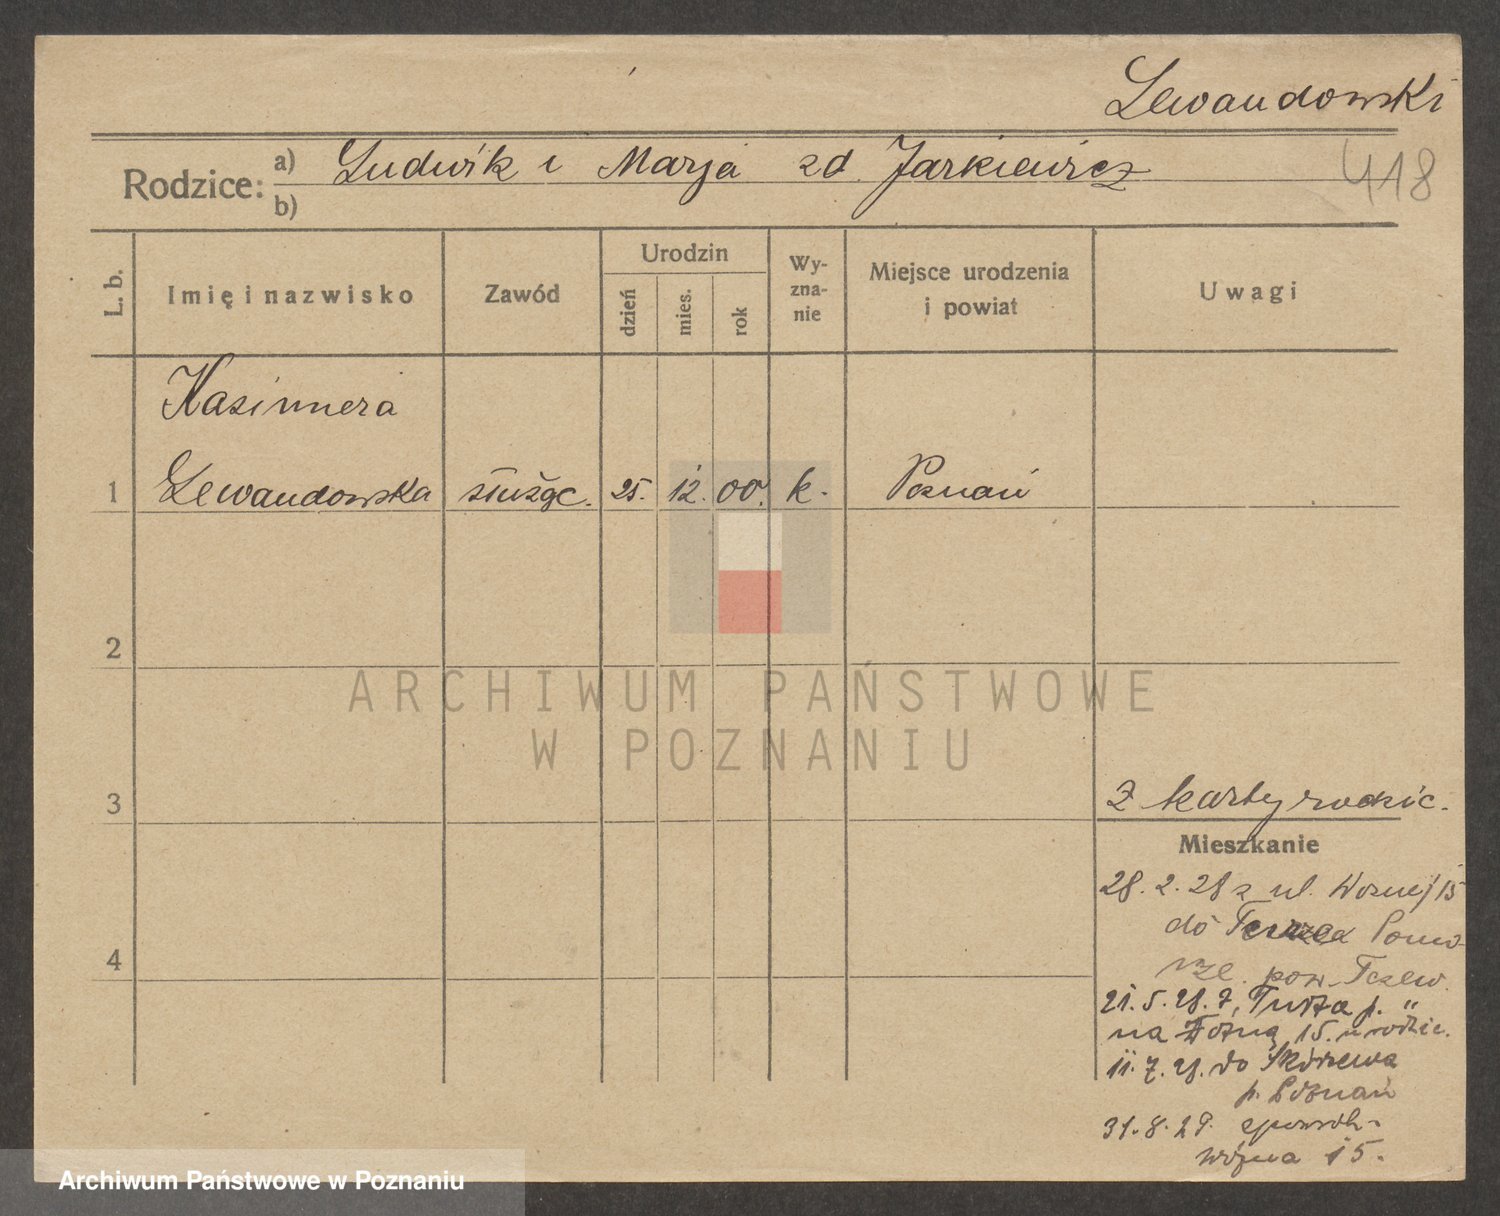 Lewandowski
418
Rodzice: a) Ludwik i Marja zd. Jarkiewicz
b)
L. b. Imię i nazwisko Zawód Urodzin dzień mies. rok Wyznanie Miejsce urodzenia i powiat Uwagi
Kazimiera
1 Lewandowska służąc. 25. 12. 00. k. Poznań
2
3
4
Z karty rodzic.
Mieszkanie
28. 2. 28 z ul. Woznej 15
do Pomo-
rze. pow. Tczew.
21. 5. 28. z, Turza p. "
na Wozną 15. u rodzic.
11. 7. 28. do Skórzewa
p. Poznań
31. 8. 29. zpowrót-
wózna 15.
ARCHIWUM PAŃSTWOWE
W POZNANIU
Archiwum Państwowe w Poznaniu